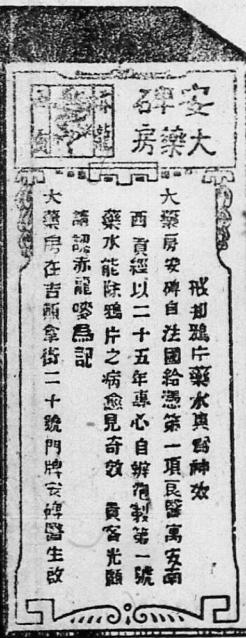 安碑
大藥房
戒却鴉片藥水真爲神效
大藥房安碑自法國給憑第一項良醫寓安南
西貢經以二十五年專心自辦泡製第一號
藥水能除鴉片之病愈見奇效 貴客光顧
請認赤龍嘜爲記
大藥房在吉顛拿街二十號門牌安碑醫生啟